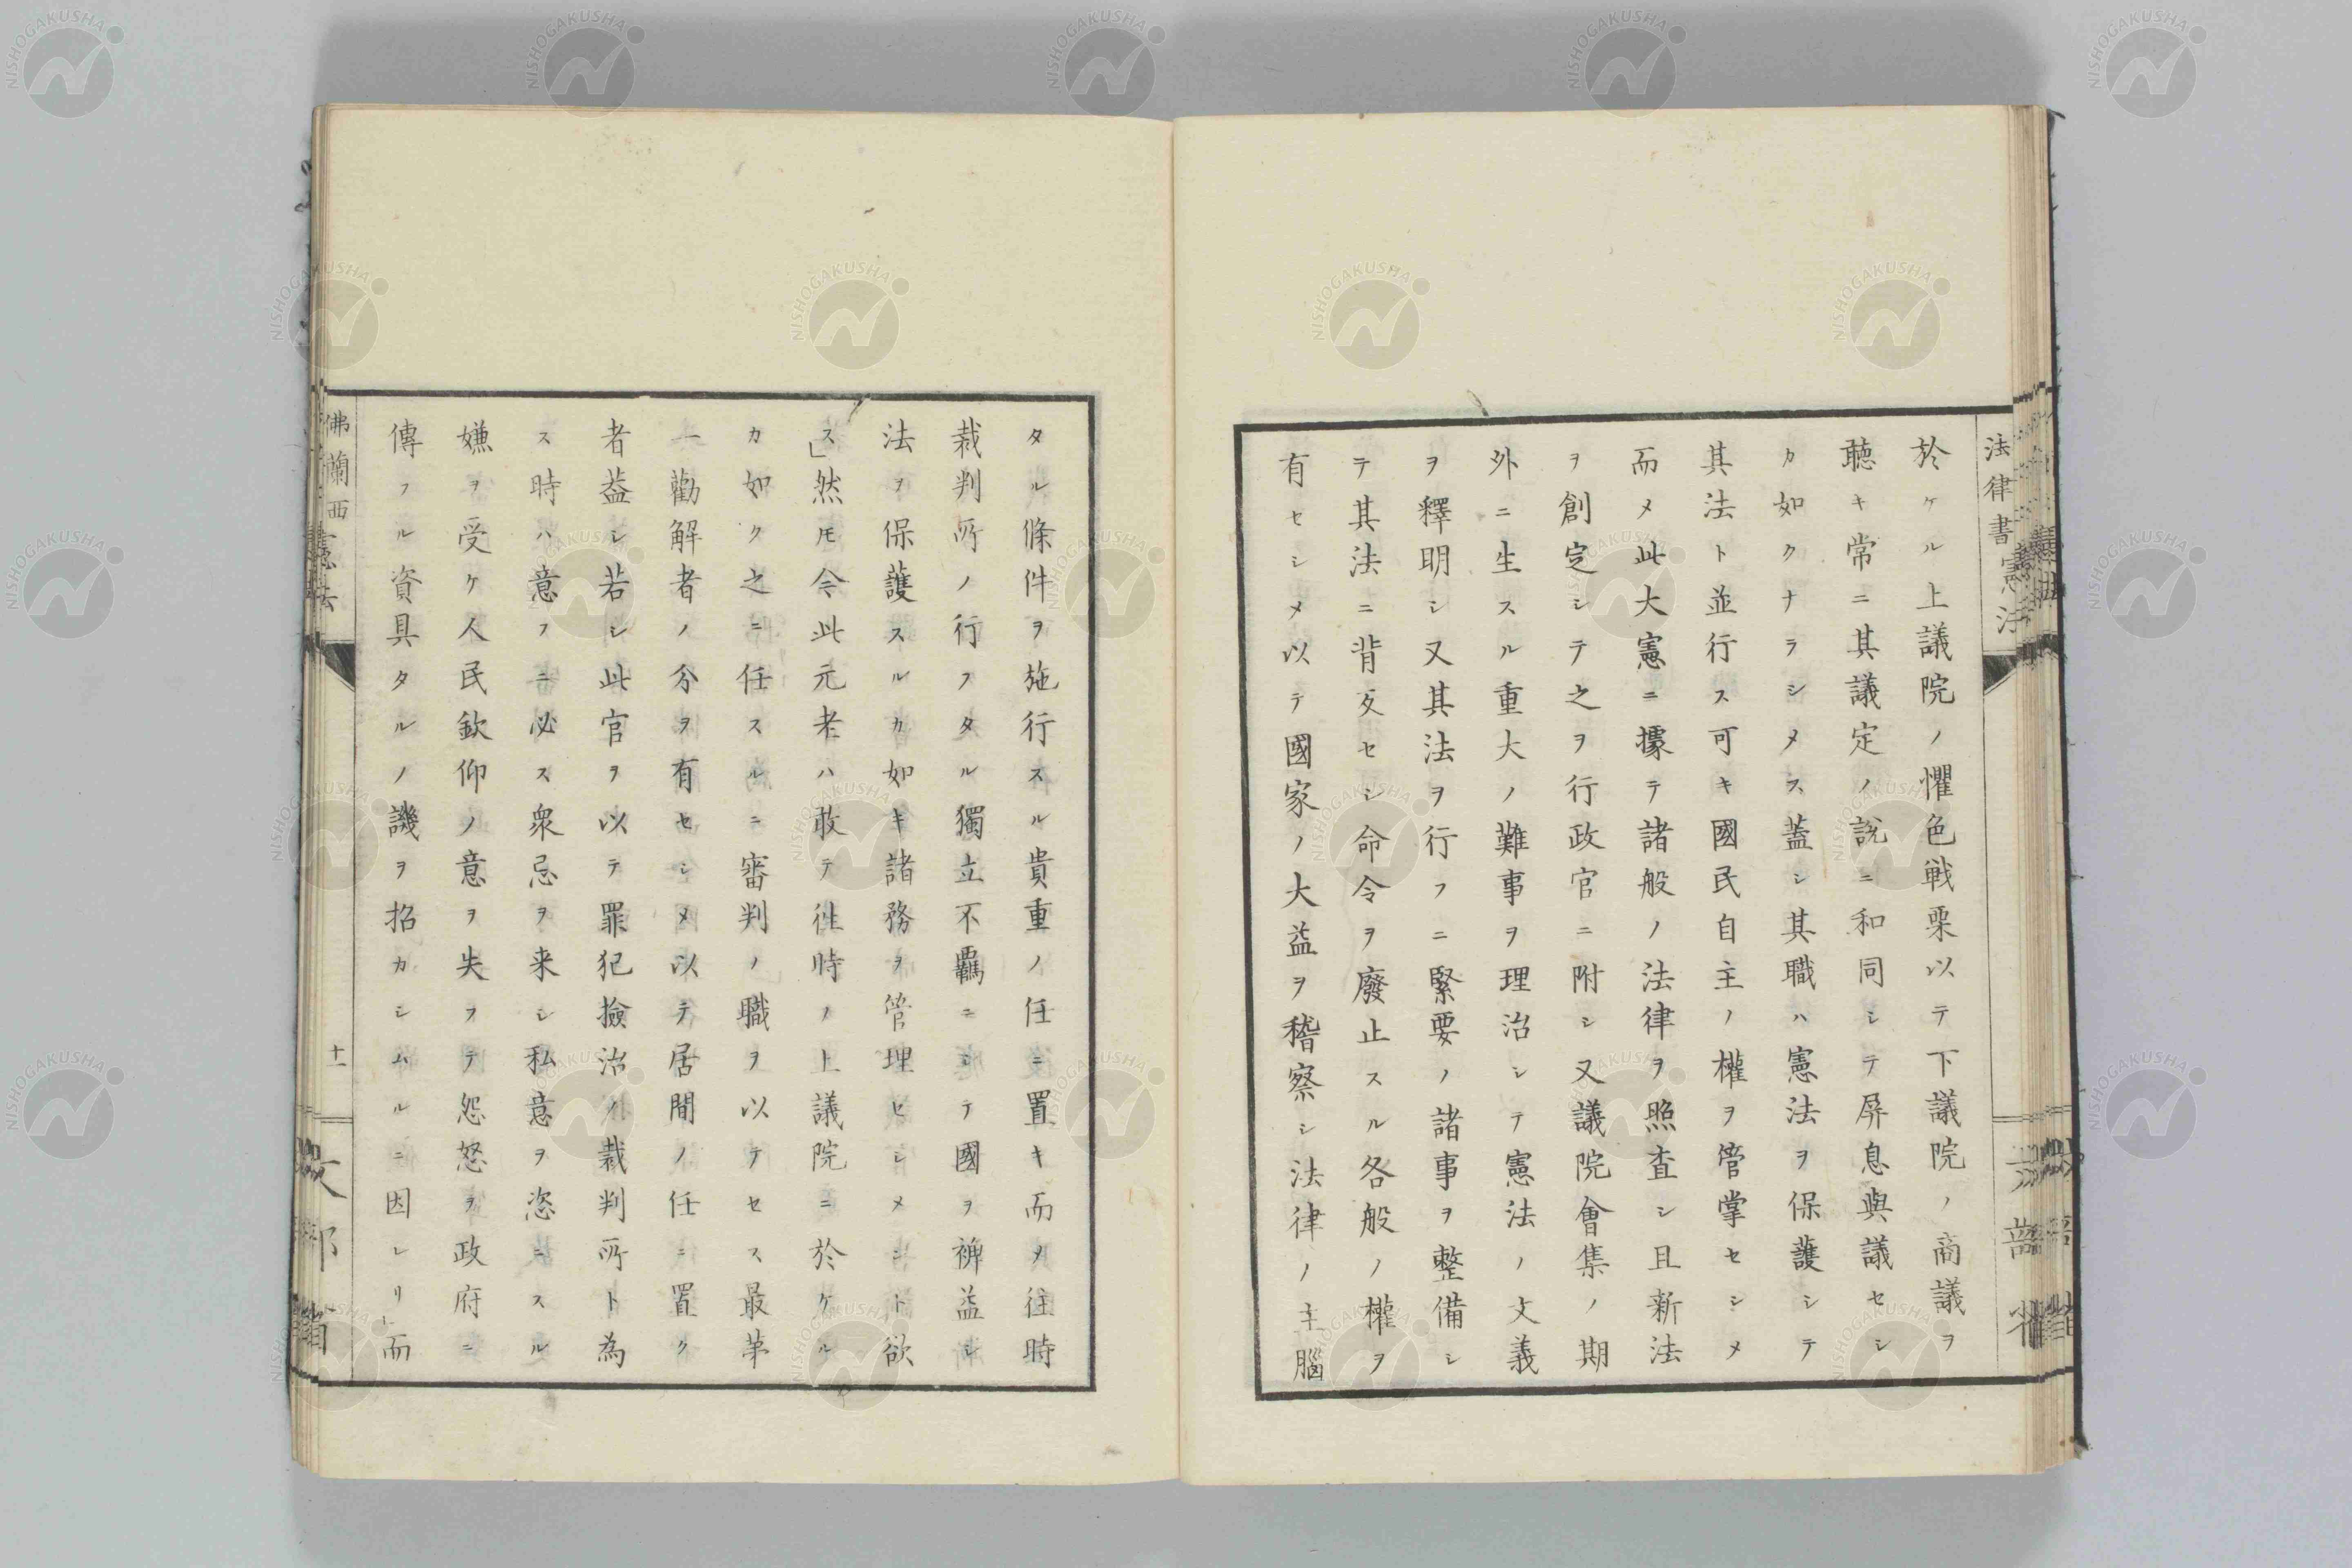 法律書憲法
於ケル上議院ノ懼色戦栗以テ下議院ノ商議ヲ
聴キ常ニ其議定ノ説ニ和同シテ屏息與議セシ
カ如クナラシメス蓋シ其職ハ憲法ヲ保護シテ
其法ト並行ス可キ國民自主ノ權ヲ管掌セシメ
而メ此大憲ニ據テ諸般ノ法律ヲ照査シ且新法
ヲ創定シテ之ヲ行政官ニ附シ又議院會集ノ期
外ニ生スル重大ノ難事ヲ理治シテ憲法ノ文義
ヲ釋明シ又其法ヲ行フニ緊要ノ諸事ヲ整備シ
テ其法ニ背反セシ命令ヲ廢止スル各般ノ權ヲ
有セシメ以テ國家ノ大益ヲ稽察シ法律ノ主腦
タル條件ヲ施行スル貴重ノ任ニ置キ而メ往時
裁判所ノ行フタル獨立不羈ニシテ國ヲ裨益シ
法ヲ保護スルカ如キ諸務ヲ管理セシメント欲
ス」然圧今此元老ハ敢テ往時ノ上議院ニ於ケル
カ如ク之ニ任スルニ審判ノ職ヲ以テセス最第
一勸解者ノ分ヲ有セシメ以テ居間ノ任ニ置ク
者益シ若シ此官ヲ以テ罪犯撿治ノ裁判所ト為
ス時ハ意フニ必ス衆忌ヲ来シ私意ヲ恣ニスル
嫌ヲ受ケ人民欽仰ノ意ヲ失ヲテ怨怒ヲ政府ニ
傳フル資具タルノ譏ヲ招カシムルニ因レリ」而
佛蘭西憲法
十一
文部省
NISHOGAKUSHA